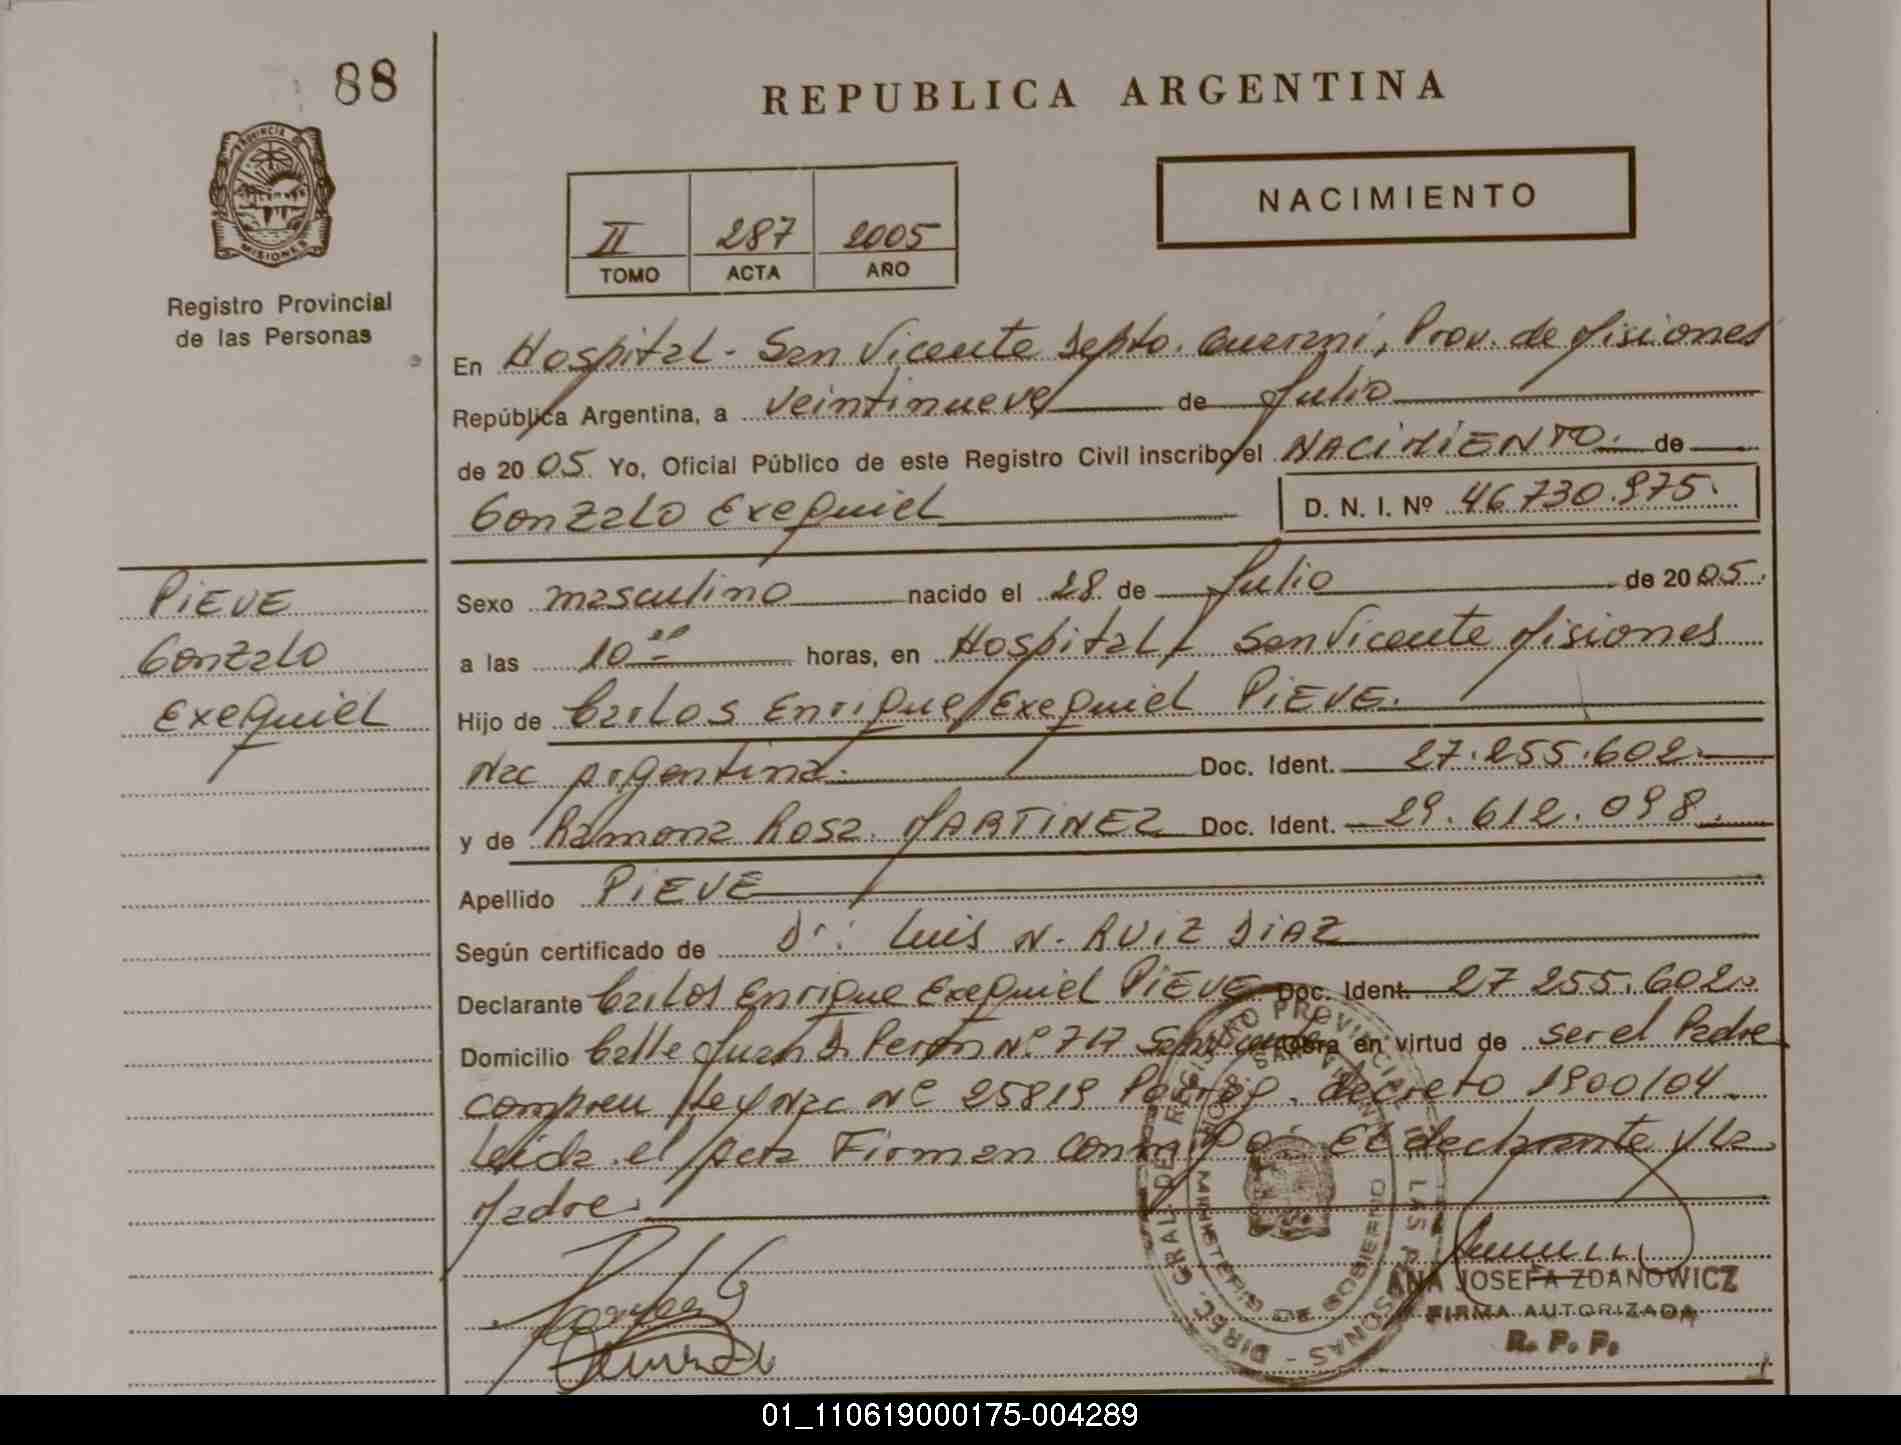 88
REPUBLICA ARGENTINA
PROVINCIA DE
MISIONES
Registro Provincial
de las Personas
II 287 2005
TOMO ACTA AÑO
NACIMIENTO
En Hospital - San Vicente Depto. Guarani, Prov. de Misiones
República Argentina, a veintinueve de Julio
de 2005. Yo, Oficial Público de este Registro Civil inscribo el NACIMIENTO. de
Gonzalo Exequiel D. N. I. Nº 46.730.975.
PIEVE
Gonzalo
Exequiel
Sexo masculino nacido el 28 de Julio de 2005.
a las 10 horas, en Hospital San Vicente Misiones
Hijo de Carlos Enrique Exequiel PIEVE.
Nac Argentina. Doc. Ident. 27.255.602.
y de Ramona Rosa. MARTINEZ Doc. Ident. 29.612.098.
Apellido PIEVE
Según certificado de Dr. Luis N. RUIZ DIAZ
Declarante Carlos Enrique Exequiel PIEVE Doc. Ident. 27 255.602
Domicilio Calle Juan D. Peron Nº 717 San Obra en virtud de ser el Padre
Ley Nac Nº 25819 decreto 1900/04
Leida el Acta Firman El declarante y la
Madre.
DIREC. GRAL. DEL REGISTRO PROVINCIAL DE LAS PERSONAS
MINISTERIO DE GOBIERNO
ANA JOSEFA ZDANOWICZ
FIRMA AUTORIZADA
R. P. P.
01_110619000175-004289